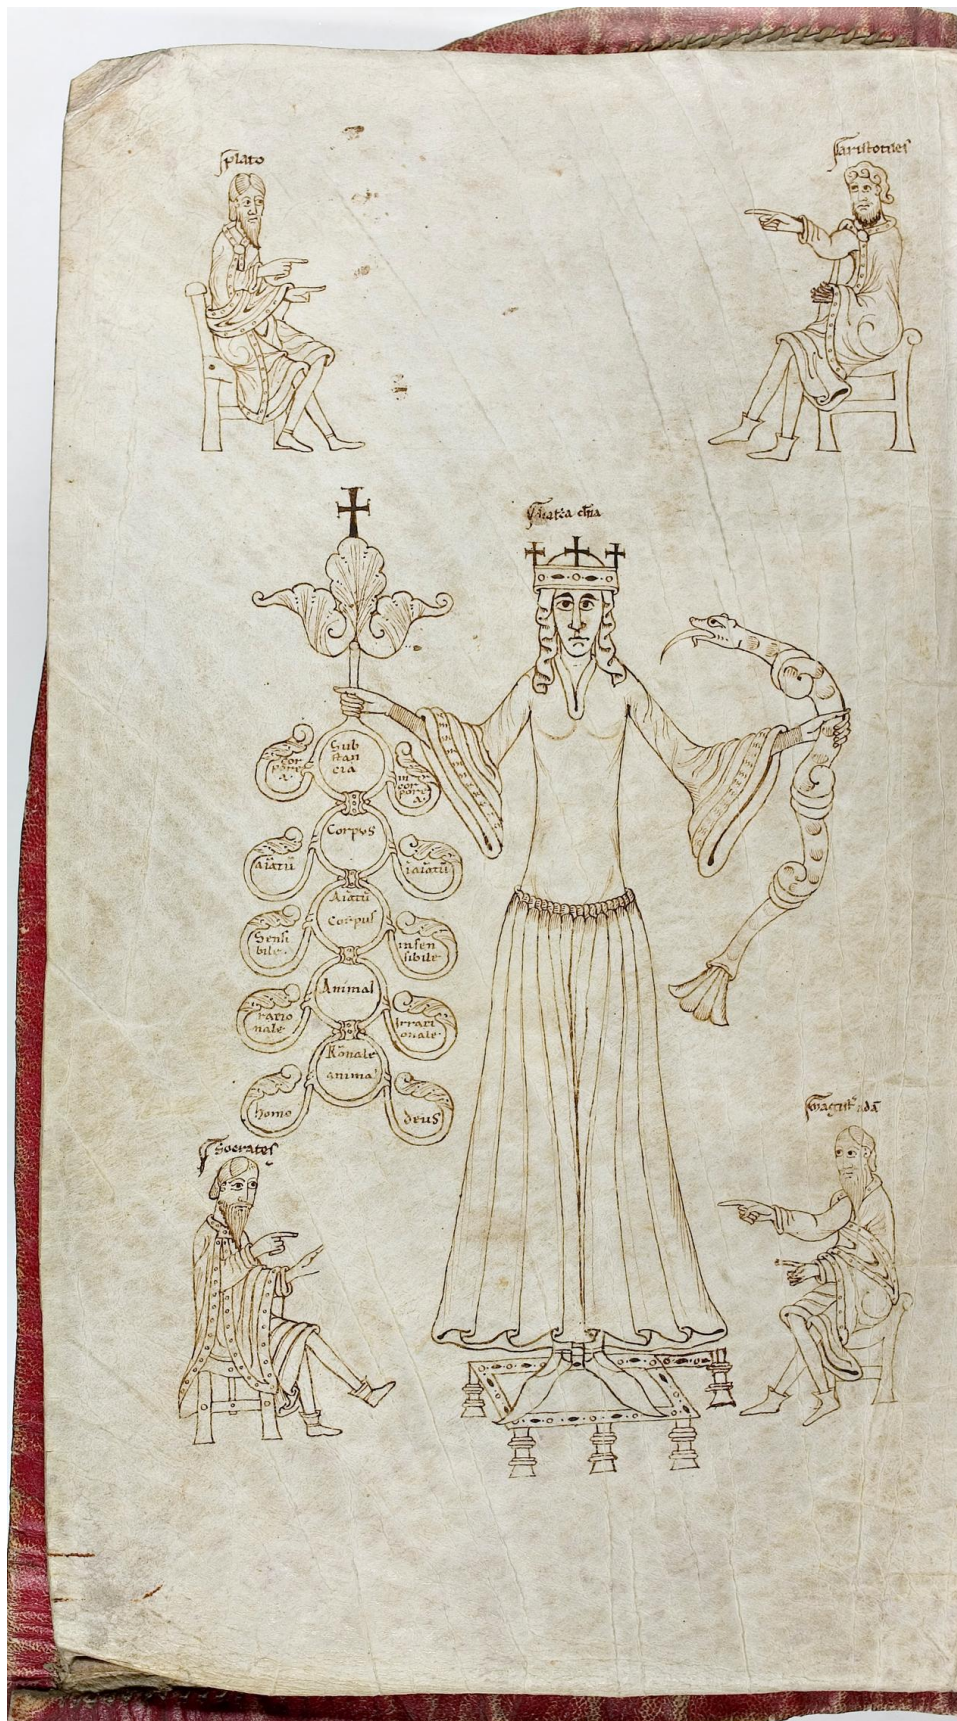 plato
aristotiles
Sub
stan
cia
cor
porea
in
cor
porea
Corpus
aiatū
iaiatū
Aiatū
Corpus
Sensi
bile.
insen
sibile
Animal
ratio
nale
irrati
onale
Rōnale
animal
homo
deus
Socrates